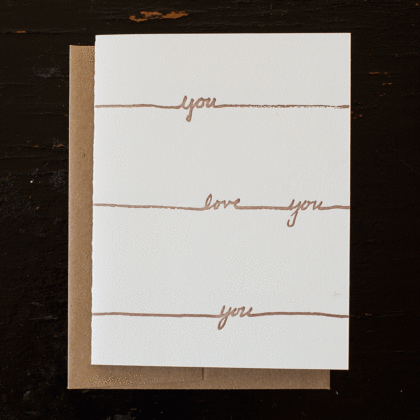 you
love you
you